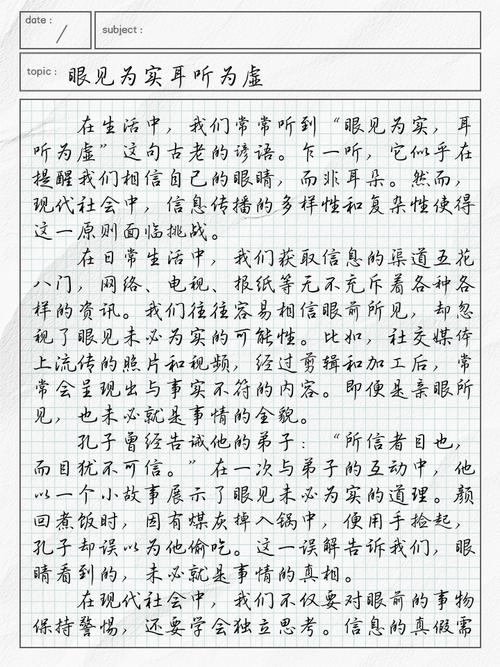 date :
subject :
topic : 眼见为实耳听为虚
在生活中，我们常常听到“眼见为实，耳
听为虚”这句古老的谚语。乍一听，它似乎在
提醒我们相信自己的眼睛，而非耳朵。然而，
现代社会中，信息传播的多样性和复杂性使得
这一原则面临挑战。
在日常生活中，我们获取信息的渠道五花
八门，网络、电视、报纸等无不充斥着各种各
样的资讯。我们往往容易相信眼前所见，却忽
视了眼见未必为实的可能性。比如，社交媒体
上流传的照片和视频，经过剪辑和加工后，常
常会呈现出与事实不符的内容。即便是亲眼所
见，也未必就是事情的全貌。
孔子曾经告诫他的弟子：“所信者目也，
而目犹不可信。”在一次与弟子的互动中，他
以一个小故事展示了眼见未必为实的道理。颜
回煮饭时，因有煤灰掉入锅中，便用手捡起，
孔子却误以为他偷吃。这一误解告诉我们，眼
睛看到的，未必就是事情的真相。
在现代社会中，我们不仅要对眼前的事物
保持警惕，还要学会独立思考。信息的真假需